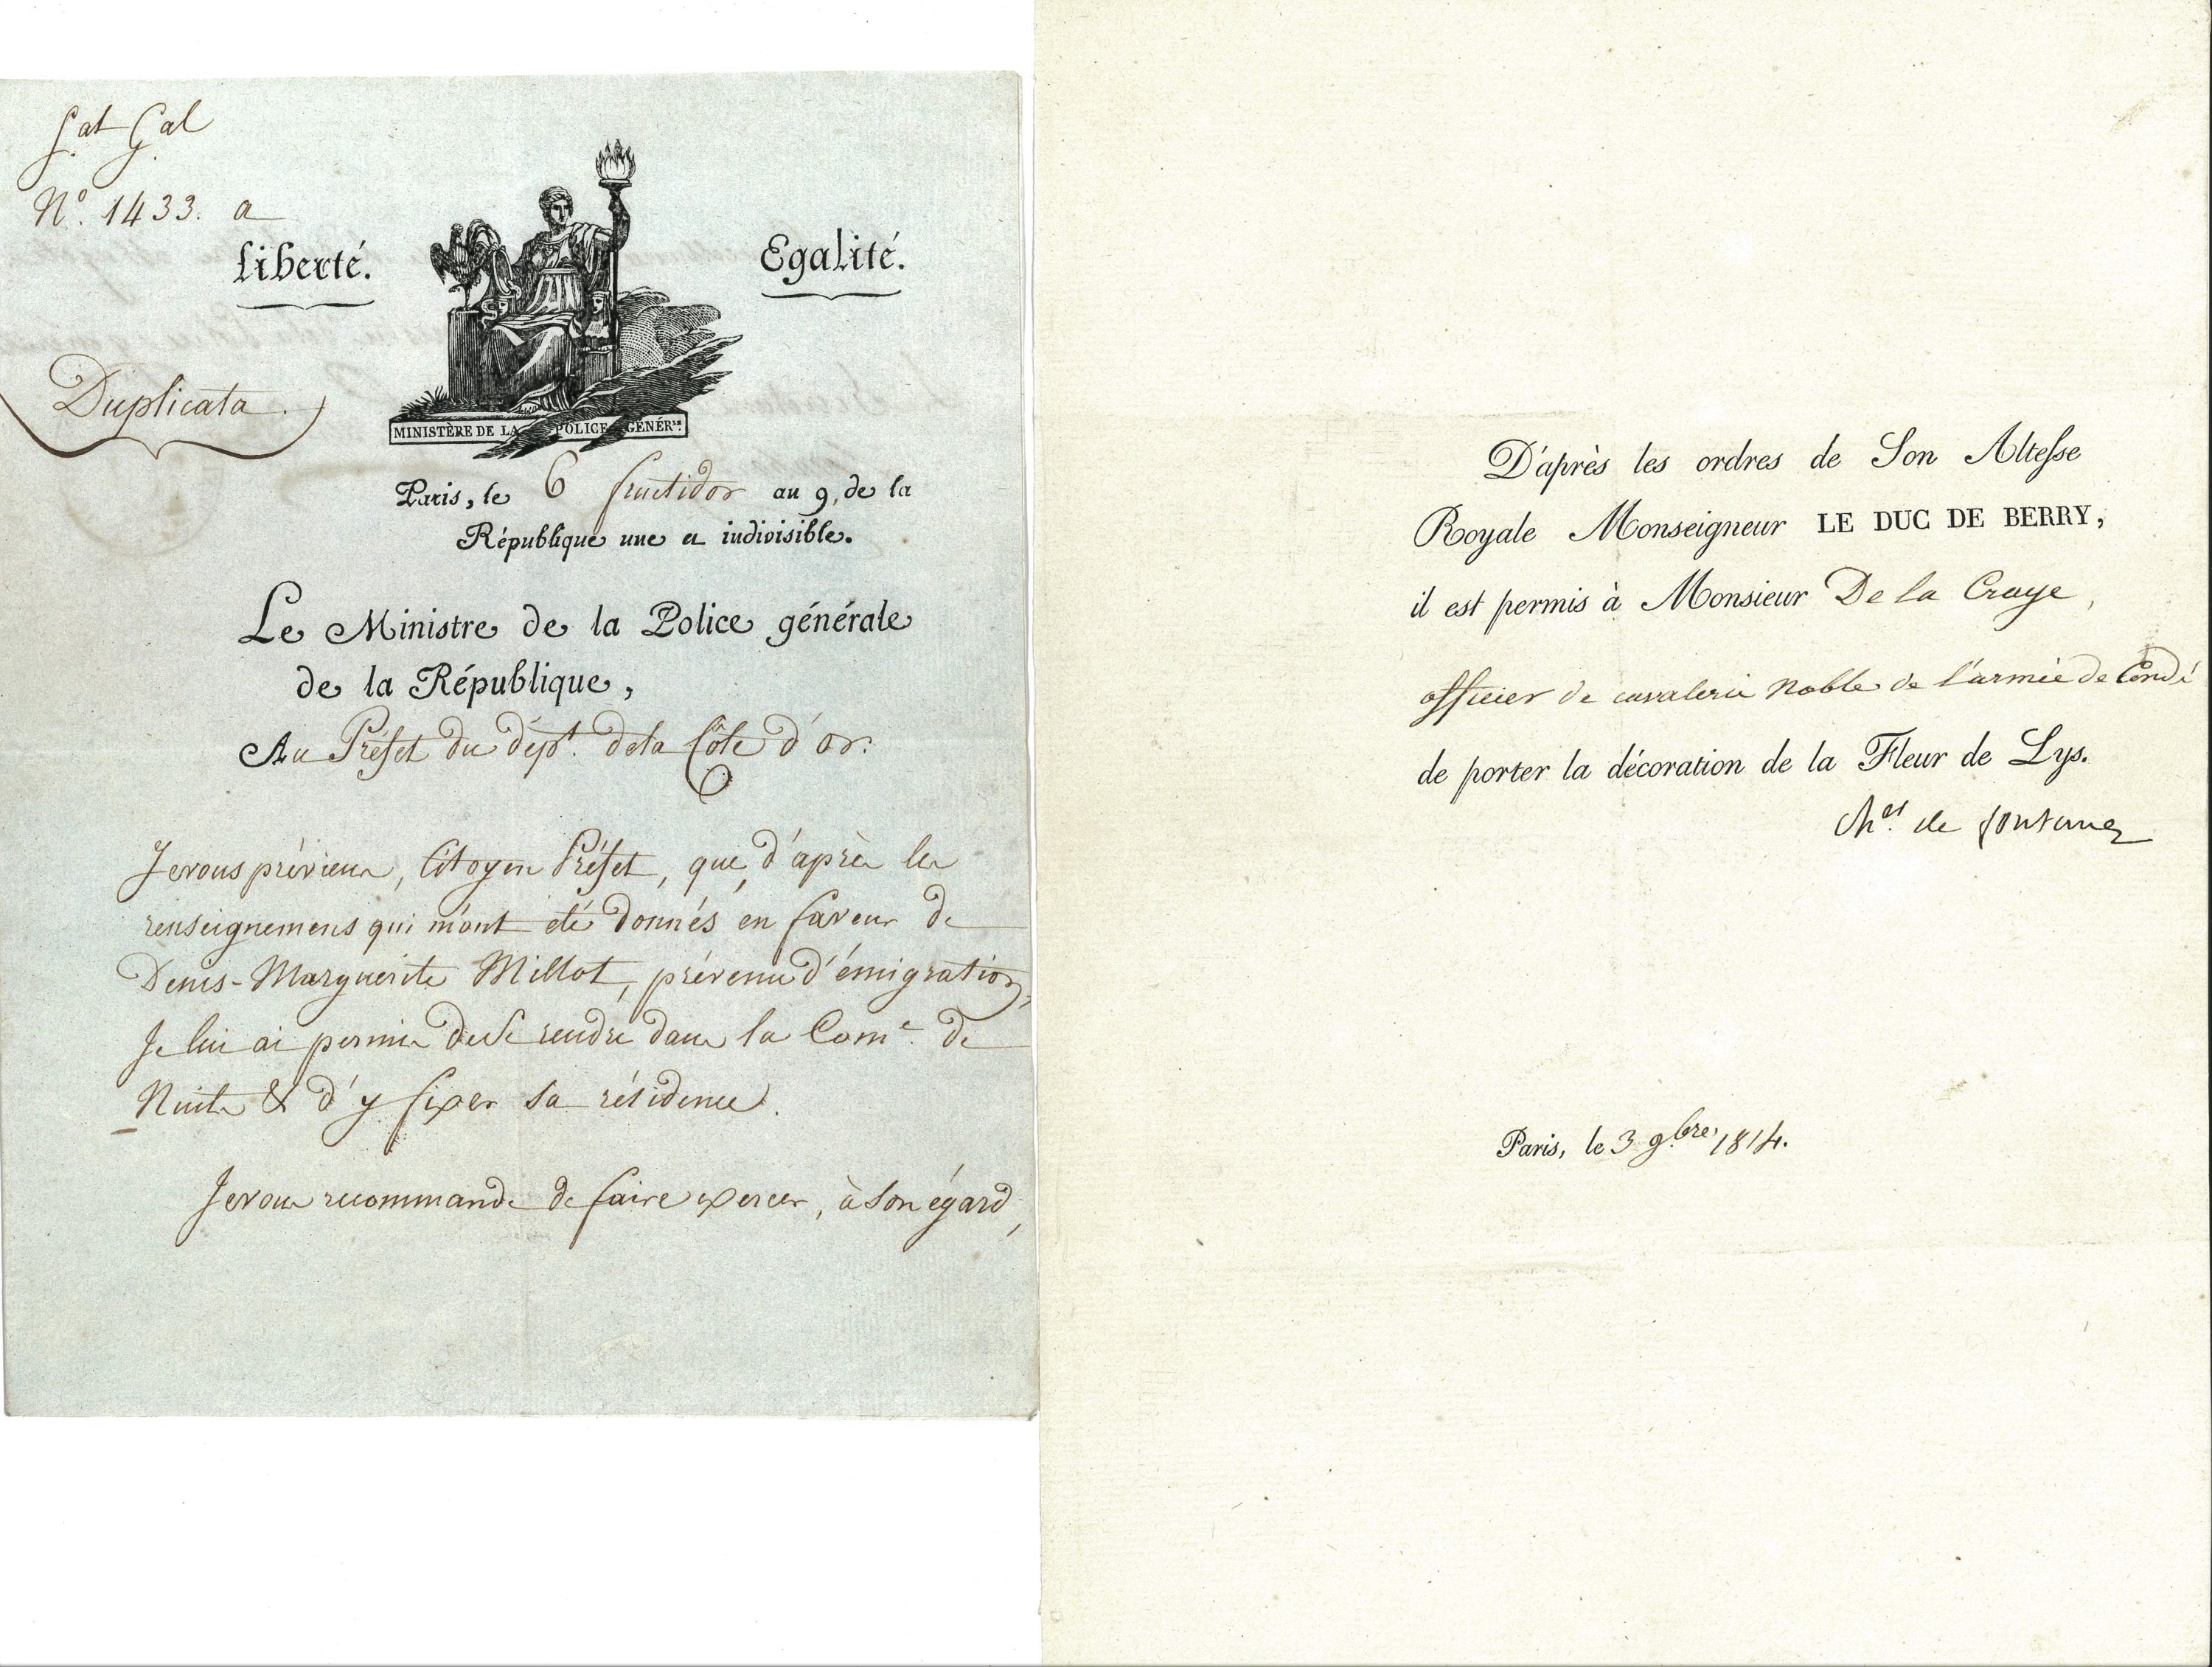 S.at G.al
Nº. 1433. a
Liberté.
Egalité.
Duplicata.
MINISTÈRE DE LA POLICE GÉNÉR.LE
Paris, le 6 fructidor an 9, de la
République une et indivisible.
Le Ministre de la Police générale
de la République,
Au Préfet du dépt. de la Côte d'or.
Je vous préviens, Citoyen Préfet, que, d'après les
renseignemens qui m'ont été donnés en faveur de
Denis-Marguerite Millot, prévenu d'émigration,
Je lui ai permis de se rendre dans la Com.e de
Nuits & d'y fixer sa résidence.
Je vous recommande de faire exercer, à son égard,
D'après les ordres de Son Altesse
Royale Monseigneur LE DUC DE BERRY,
il est permis à Monsieur De la Craye,
officier de cavalerie noble de l'armée de Condé
de porter la décoration de la Fleur de Lys.
Ch.er de fontanes
Paris, le 3 9bre. 1814.